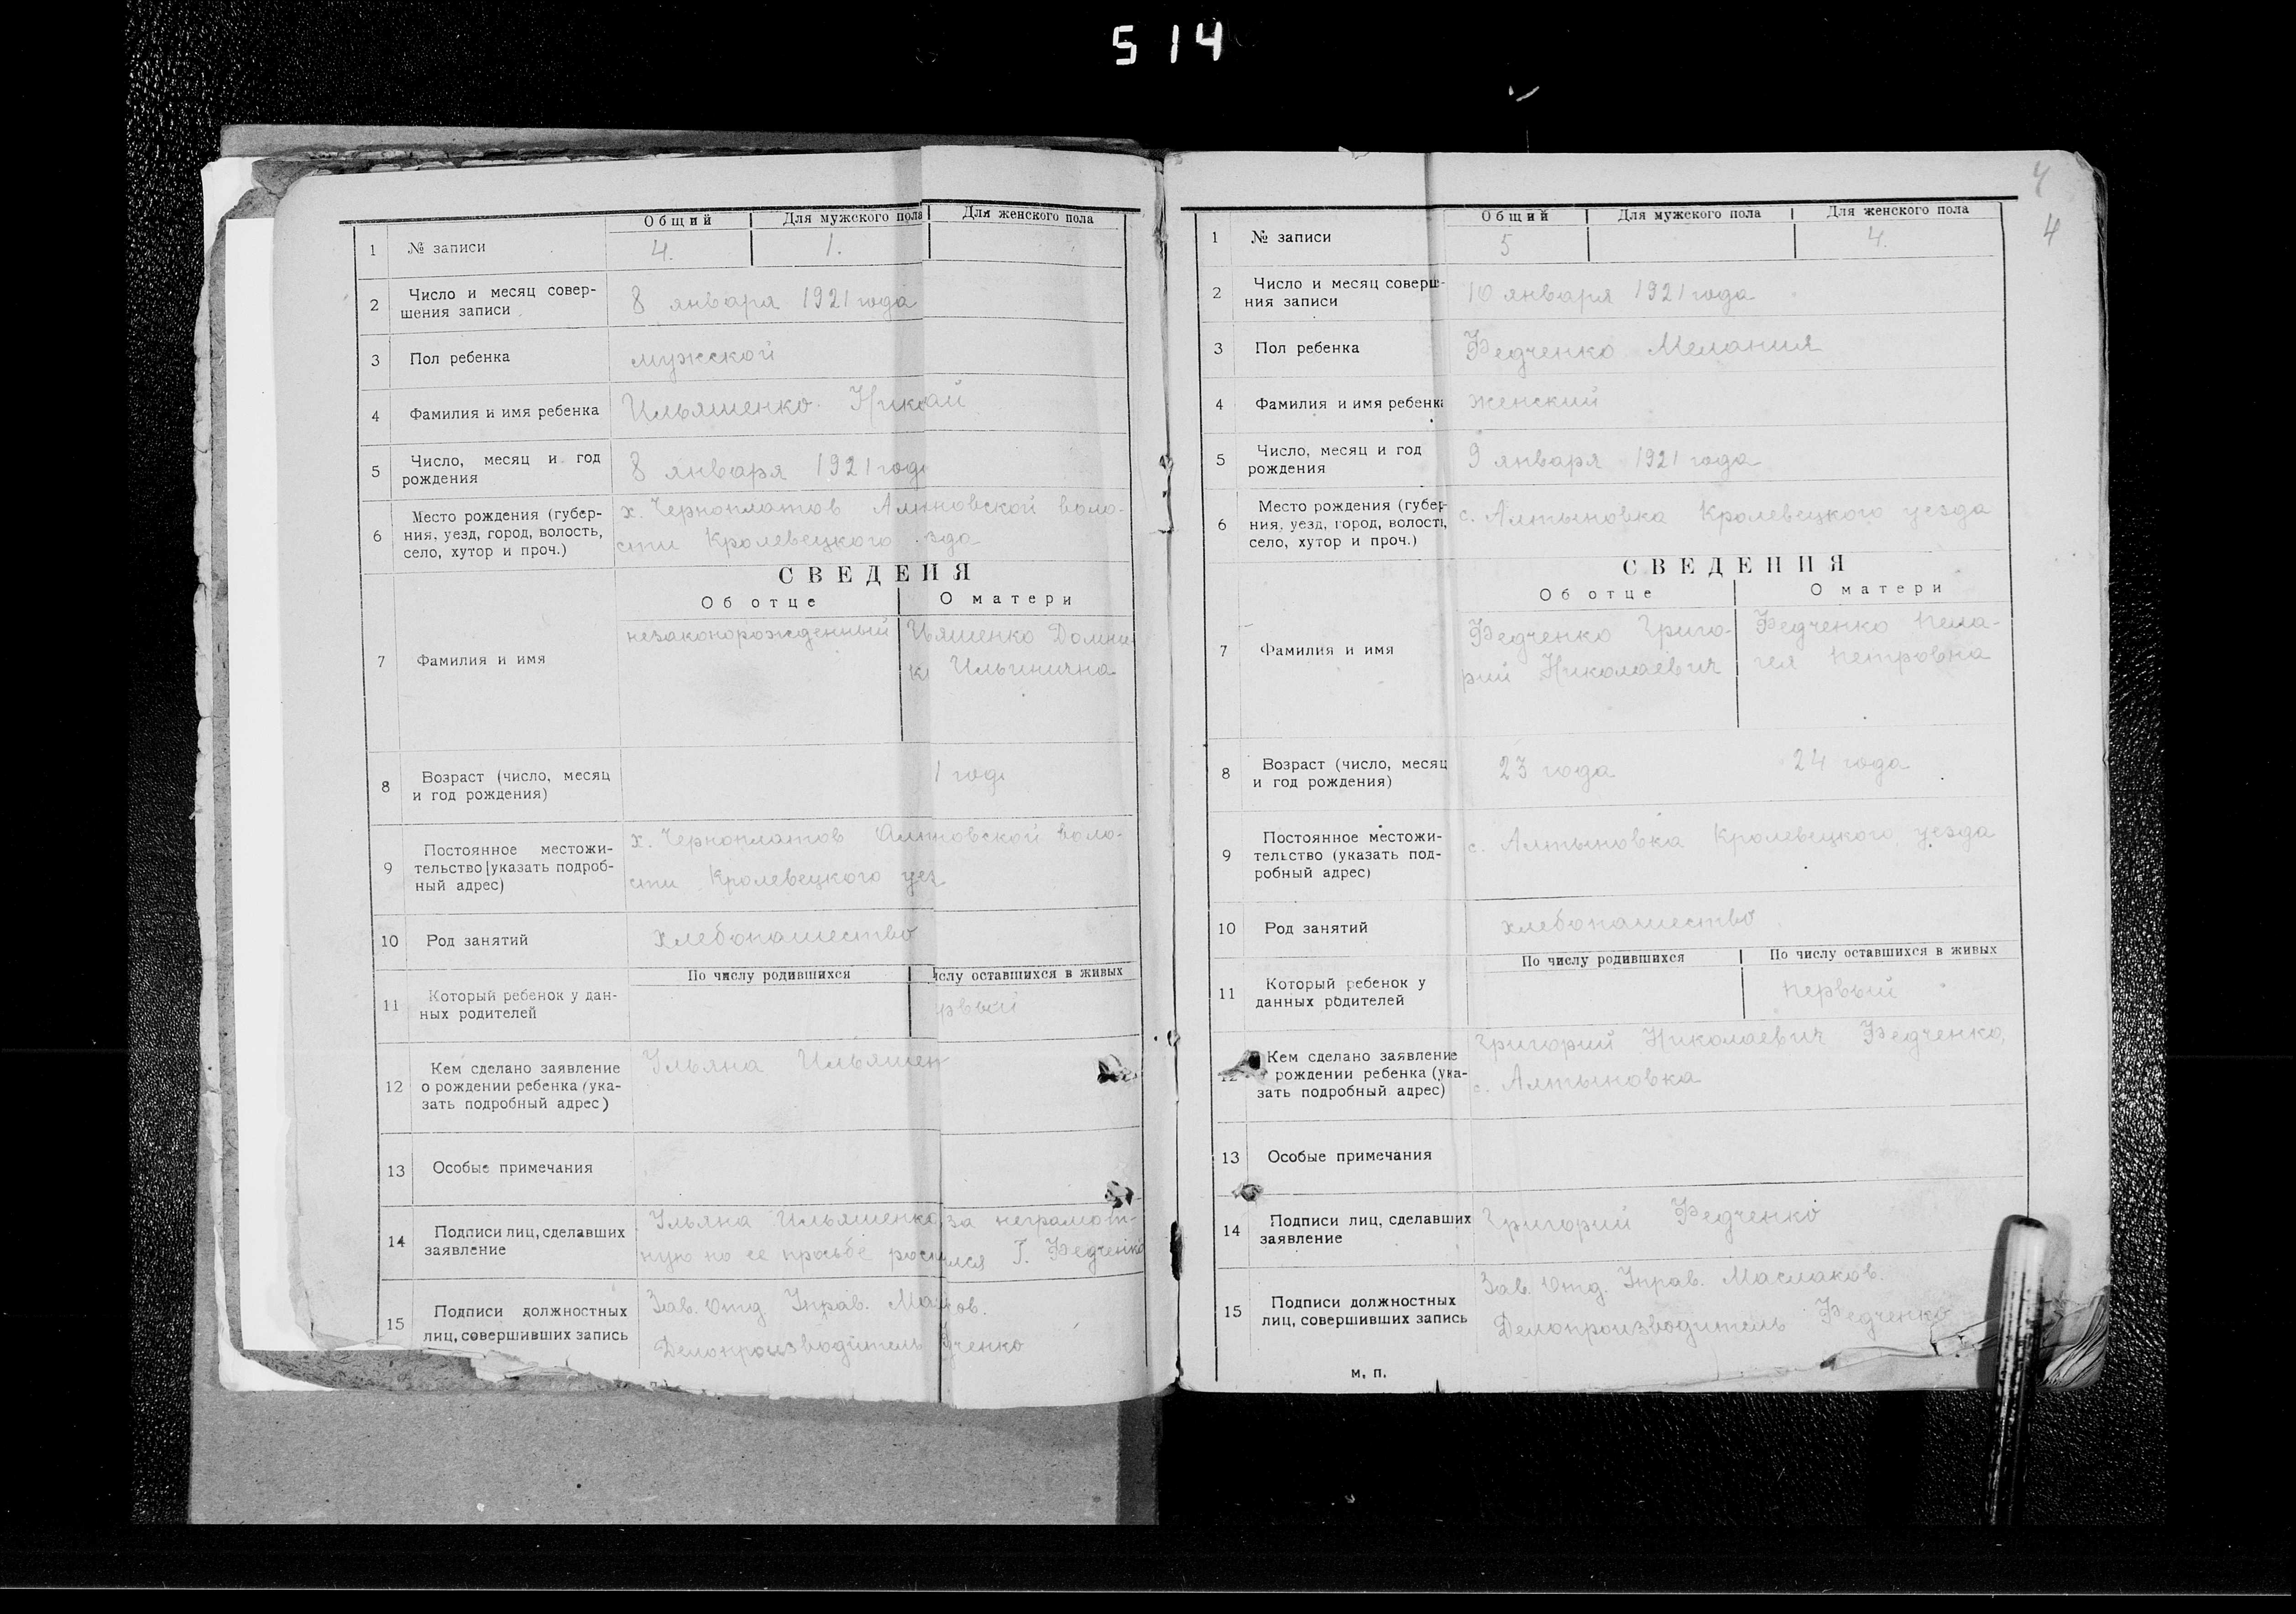 514
Общий Для мужского пола Для женского пола
1 № записи 4. 1.
2 Число и месяц совер-
шения записи 8 января 1921 года
3 Пол ребенка мужской
4 Фамилия и имя ребенка Ильяшенко Никоай
5 Число, месяц и год
рождения 8 января 1921 год
6 Место рождения (губер-
ния, уезд, город, волость,
село, хутор и проч.)
х. Черноплатов Алновской воло-
сти Кролевецкого зда
СВЕДЕНЯ
Об отце О матери
7 Фамилия и имя
незаконорожденный
Ияшенко Домни-
к Ильинична
8 Возраст (число, месяц
и год рождения) 1 год
9 Постоянное местожи-
тельство [указать подроб-
ный адрес)
х. Черноплатов Алновской воло-
сти Кролевецкого уез
10 Род занятий хлебопашество
По числу родившихся ислу оставшихся в живых
11 Который ребенок у дан-
ных родителей рвый
12 Кем сделано заявление
о рождении ребенка (ука-
зать подробный адрес)
Ульяна Ильяшен
13 Особые примечания
14 Подписи лиц, сделавших
заявление
Ульяна Ильяшенко, за неграмот-
ную по ее прозьбе роспилися Г. Федченко
15 Подписи должностных
лиц, совершивших запись
Зав. Отд. Управ. Маков.
Делопроизводитель Фченко
4
4
Общий Для мужского пола Для женского пола
1 № записи 5 4.
2 Число и месяц соверш-
ния записи 10 января 1921 года
3 Пол ребенка Федченко Мелания
4 Фамилия и имя ребенка женский
5 Число, месяц и год
рождения 9 января 1921 года
6 Место рождения (губер-
ния, уезд, город, волость,
село, хутор и проч.)
с. Алтыновка Кролевецкого уезда
СВЕДЕНИЯ
Об отце О матери
7 Фамилия и имя
Федченко Григо-
рий Николаевич
Федченко Пела-
гея Петровна
8 Возраст (число, месяц
и год рождения) 23 года 24 года
9 Постоянное местожи-
тельство (указать под-
робный адрес)
с. Алтыновка Кролевецкого уезда
10 Род занятий хлебопашество
По числу родившихся По числу оставшихся в живых
11 Который ребенок у
данных родителей первый
12 Кем сделано заявление
рождении ребенка (ука-
зать подробный адрес)
Григорий Николаевич Федченко,
с. Алтыновка
13 Особые примечания
14 Подписи лиц, сделавших
заявление Григорий Федченко
15 Подписи должностных
лиц, совершивших запись
Зав. Отд. Управ. Маслаков.
Делопроизводитель Федченко
м. п.